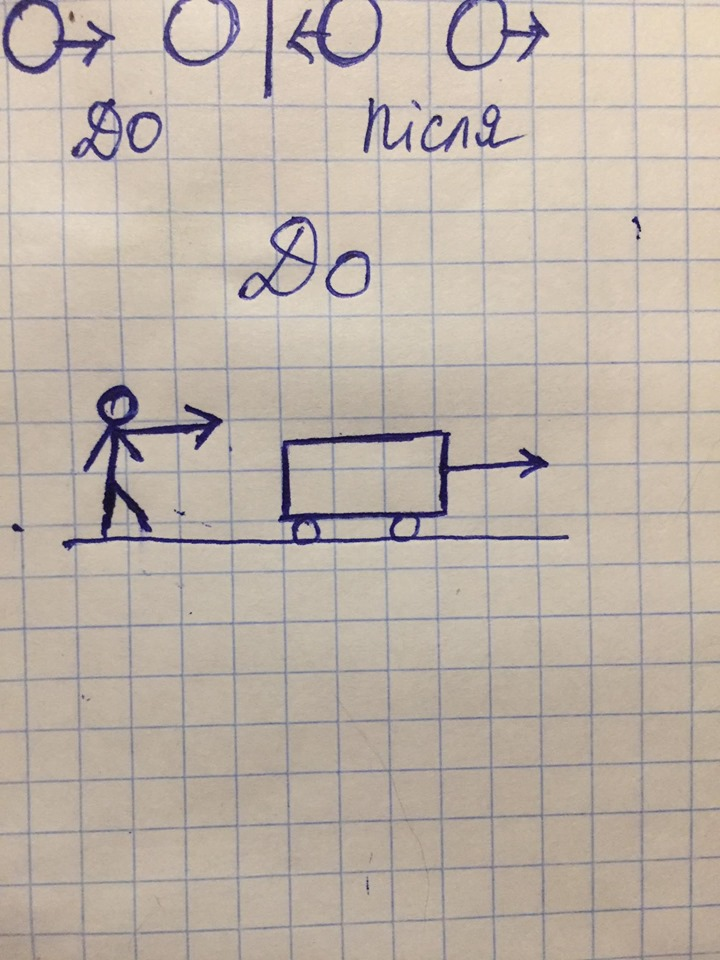 До після
До